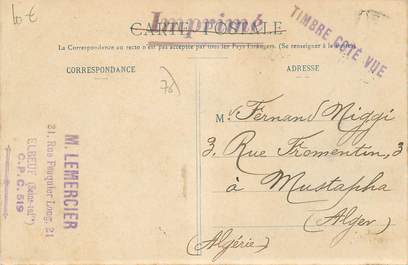 CARTE POSTALE
Imprimé
TIMBRE COTÉ VUE
La Correspondance au recto n'est pas acceptée par tous les Pays Étrangers. (Se renseigner à la
CORRESPONDANCE
ADRESSE
M. Fernand Niggi
3, Rue Fromentin, 3
à Mustapha
(Alger)
(Algérie)
M. LEMERCIER
21, Rue 21
ELBEUF
C.P.C. 519